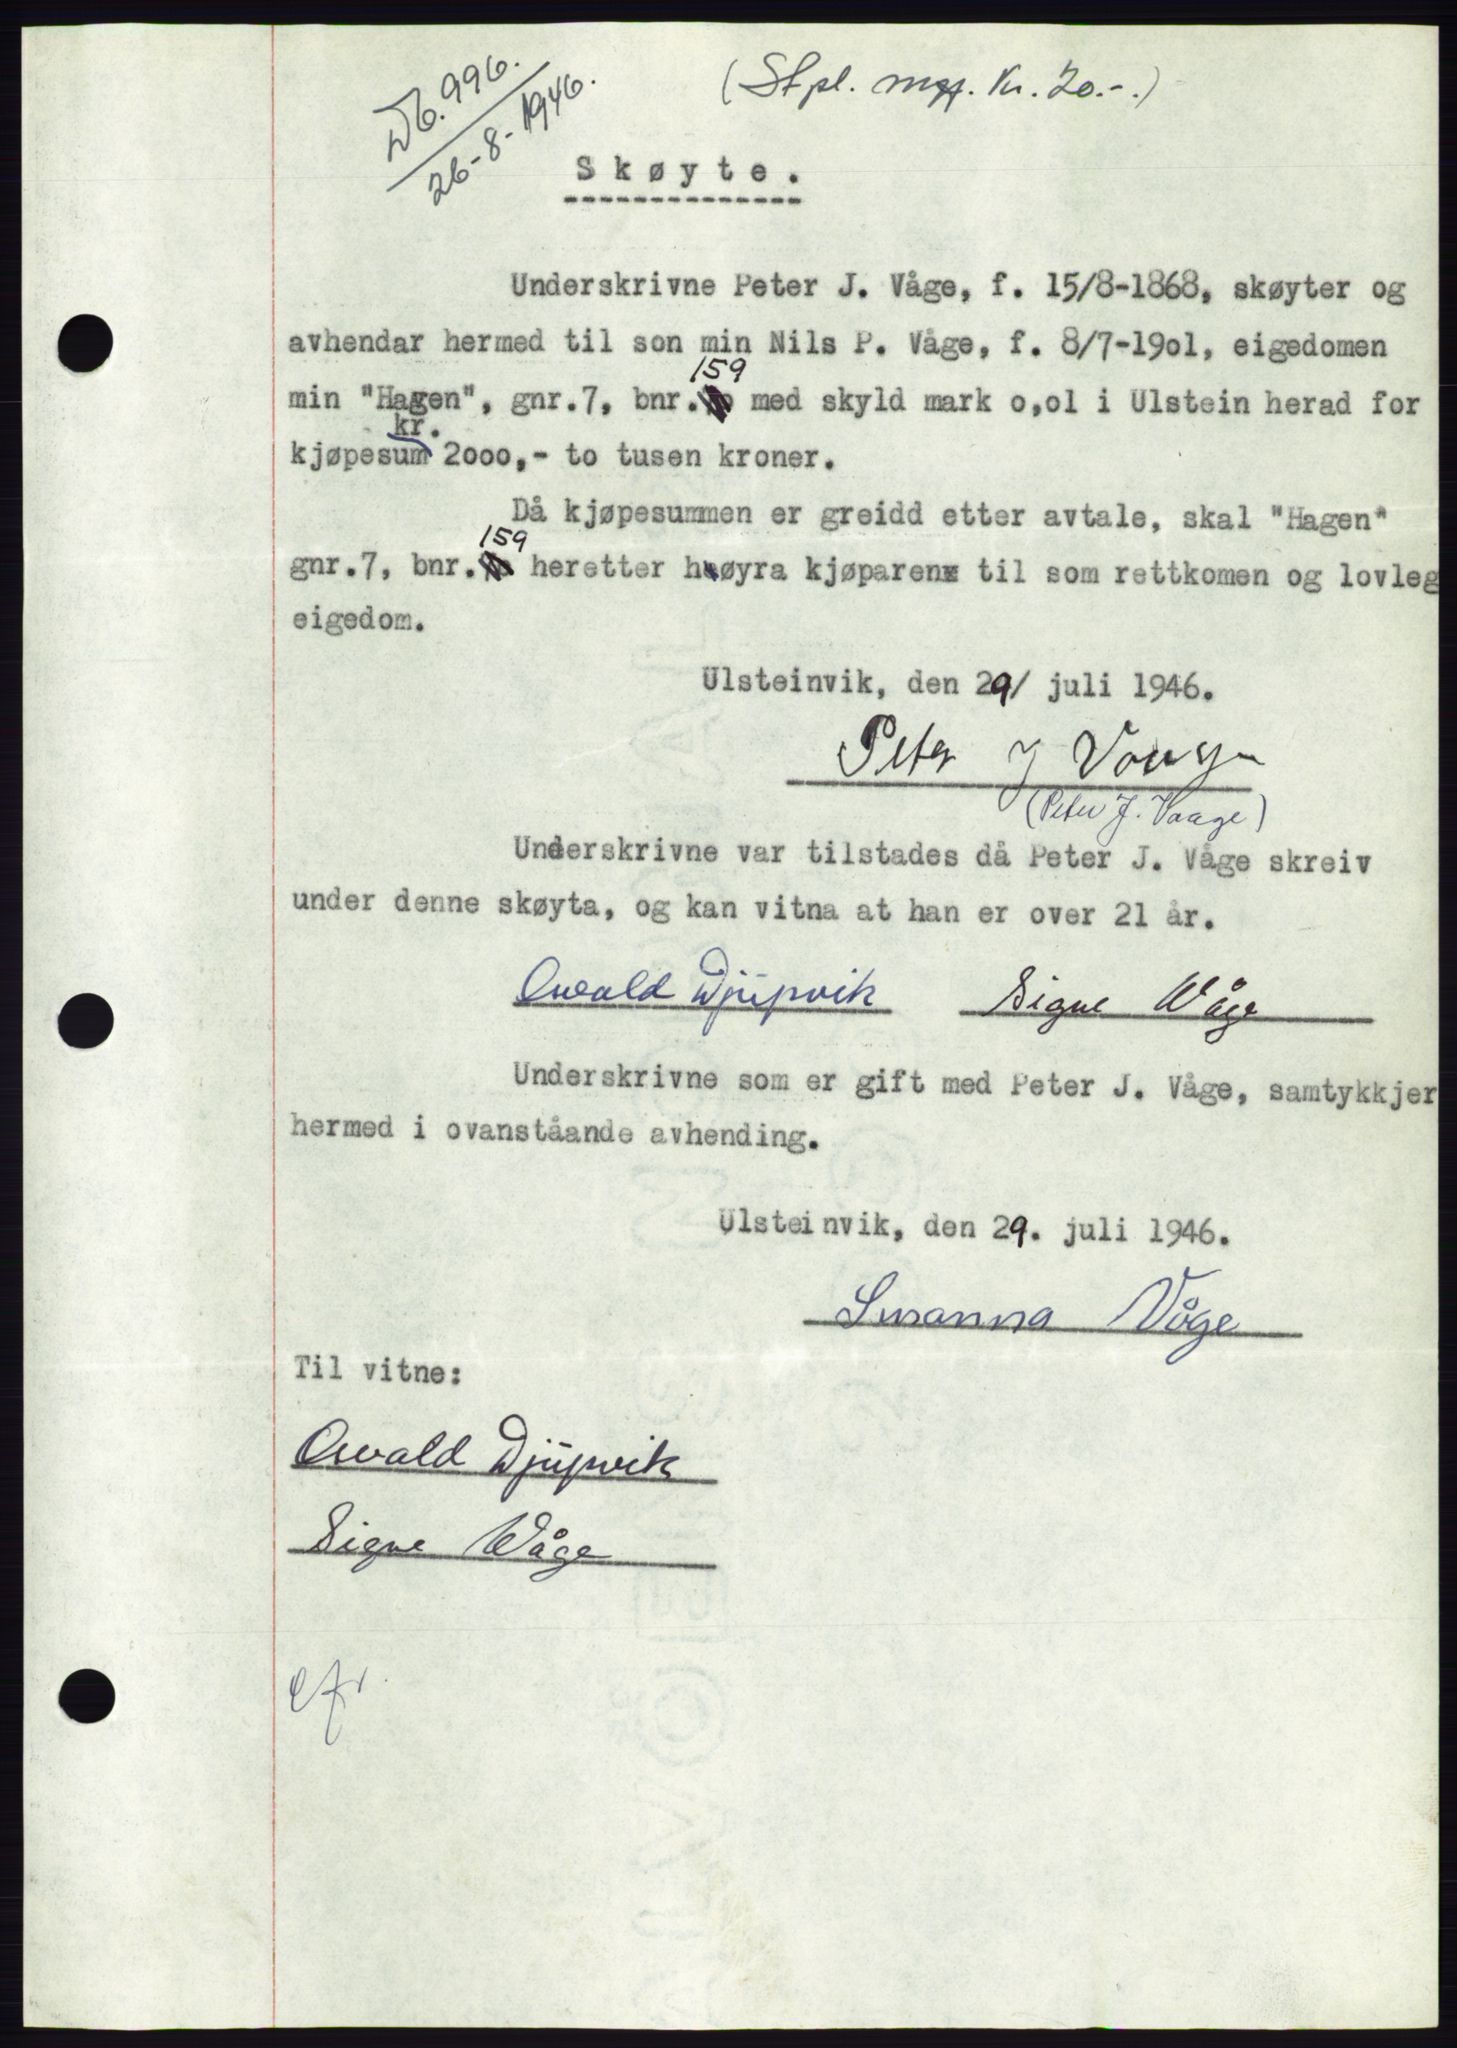 Db. 996.
26-8-1946.
(Stpl. mgf. Kr. 20.-.)
Skøyte.
Underskrivne Peter J. Våge, f. 15/8-1868, skøyter og
avhendar hermed til son min Nils P. Våge, f. 8/7-19o1, eigedomen
159
min "Hagen", gnr.7, bnr. med skyld mark o,o1 i Ulstein herad for
kr.
kjøpesum 2ooo,- to tusen kroner.
Då kjøpesummen er greidd etter avtale, skal "Hagen"
159
gnr.7, bnr. heretter høyra kjøparen til som rettkomen og lovleg
eigedom.
Ulsteinvik, den 29/ juli 1946.
Peter J Vaage
(Peter J. Vaage)
Underskrivne var tilstades då Peter J. Våge skreiv
under denne skøyta, og kan vitna at han er over 21 år.
Oswald Djupvik Signe Våge
Underskrivne som er gift med Peter J. Våge, samtykkjer
hermed i ovanståande avhending.
Ulsteinvik, den 29. juli 1946.
Susanna Våge
Til vitne:
Oswald Djupvik
Signe Våge